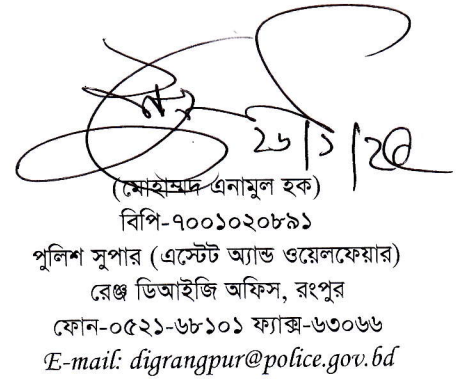 ২৬/১/২৫
(মোহাম্মদ এনামুল হক)
বিপি-৭০০১০২০৮৯১
পুলিশ সুপার (এস্টেট অ্যান্ড ওয়েলফেয়ার)
রেঞ্জ ডিআইজি অফিস, রংপুর
ফোন-০৫২১-৬৮১০১ ফ্যাক্স-৬৩০৬৬
E-mail: digrangpur@police.gov.bd